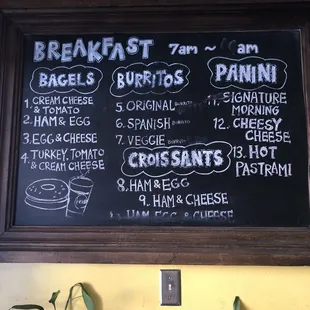 BREAKFAST 7am ~ am
BAGELS
1. CREAM CHEESE
& TOMATO
2. HAM & EGG
3. EGG & CHEESE
4. TURKEY, TOMATO
& CREAM CHEESE
BURRITOS
5. ORIGINAL BURRITO
6. SPANISH BURRITO
7. VEGGIE BURRITO
CROISSANTS
8. HAM & EGG
9. HAM & CHEESE
HAM EGG & CHEESE
PANINI
11. SIGNATURE
MORNING
12. CHEESY
CHEESE
13. HOT
PASTRAMI